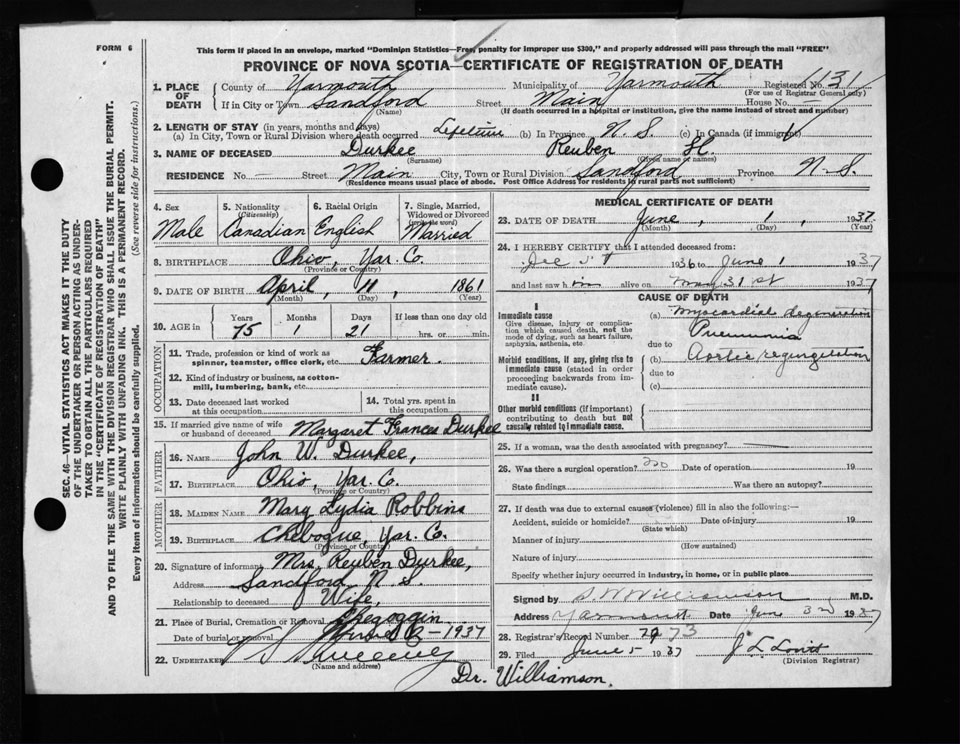 FORM 6
This form if placed in an envelope, marked "Dominion Statistics—Free, penalty for improper use $300," and properly addressed will pass through the mail "FREE"
PROVINCE OF NOVA SCOTIA—CERTIFICATE OF REGISTRATION OF DEATH
1. PLACE OF DEATH County of Yarmouth Municipality of Yarmouth Registered No. 31
(For use of Registrar General only)
If in City or Town Sandford Street Main House No. —
(Name) (If death occurred in a hospital or institution, give the name instead of street and number)
2. LENGTH OF STAY (in years, months and days)
(a) In City, Town or Rural Division where death occurred Lifetime (b) In Province N. S. (c) In Canada (if immigrant)
3. NAME OF DECEASED Durkee Reuben H.
(Surname) (Given name or names)
RESIDENCE No. — Street Main City, Town or Rural Division Sandford Province N. S.
(Residence means usual place of abode. Post Office Address for residents in rural parts not sufficient)
4. Sex 5. Nationality (Citizenship) 6. Racial Origin 7. Single, Married, Widowed or Divorced (write the word)
Male Canadian English Married
8. BIRTHPLACE Ohio, Yar. Co.
(Province or Country)
9. DATE OF BIRTH April 11 1861
(Month) (Day) (Year)
10. AGE in Years Months Days If less than one day old
75 1 21 hrs. or min.
OCCUPATION
11. Trade, profession or kind of work as spinner, teamster, office clerk, etc. Farmer.
12. Kind of industry or business, as cotton-mill, lumbering, bank, etc.
13. Date deceased last worked at this occupation
14. Total yrs. spent in this occupation
15. If married give name of wife or husband of deceased Margaret Frances Durkee
FATHER
16. NAME John W. Durkee,
17. BIRTHPLACE Ohio, Yar. Co.
(Province or Country)
MOTHER
18. MAIDEN NAME Mary Lydia Robbins
19. BIRTHPLACE Chebogue, Yar. Co.
(Province or Country)
20. Signature of informant Mrs. Reuben Durkee,
Address Sandford N. S.
Relationship to deceased Wife,
21. Place of Burial, Cremation or Removal Chegoggin
Date of burial or removal 1937
22. UNDERTAKER V S Sweeney
(Name and address)
Dr. Williamson.
MEDICAL CERTIFICATE OF DEATH
23. DATE OF DEATH June, 1, 1937
(Month) (Day) (Year)
24. I HEREBY CERTIFY that I attended deceased from:
Dec 1936 to June 1 1937
and last saw him alive on May 31st 1937
CAUSE OF DEATH
I
Immediate cause
Give disease, injury or complication which caused death, not the mode of dying, such as heart failure, asphyxia, asthenia, etc.
(a) Myocardial degeneration
Pneumonia
due to
Morbid conditions, if any, giving rise to immediate cause (stated in order proceeding backwards from immediate cause).
(b) Aortic regurgitation
due to
(c)
II
Other morbid conditions (if important) contributing to death but not causally related to immediate cause.
25. If a woman, was the death associated with pregnancy?
26. Was there a surgical operation? no Date of operation 19
State findings Was there an autopsy?
27. If death was due to external causes (violence) fill in also the following:—
Accident, suicide or homicide? Date of injury 19
(State which)
Manner of injury
(How sustained)
Nature of injury
Specify whether injury occurred in industry, in home, or in public place
Signed by S W Williamson M.D.
Address Yarmouth Date June 3rd 1937
28. Registrar's Record Number 73
29. Filed June 5 1937
(Division Registrar)
SEC. 46—VITAL STATISTICS ACT MAKES IT THE DUTY
OF THE UNDERTAKER OR PERSON ACTING AS UNDER-
TAKER TO OBTAIN ALL THE PARTICULARS REQUIRED
IN THE "CERTIFICATE OF REGISTRATION OF DEATH"
AND TO FILE THE SAME WITH THE DIVISION REGISTRAR WHO SHALL ISSUE THE BURIAL PERMIT.
WRITE PLAINLY WITH UNFADING INK. THIS IS A PERMANENT RECORD.
Every item of information should be carefully supplied. (See reverse side for instructions.)